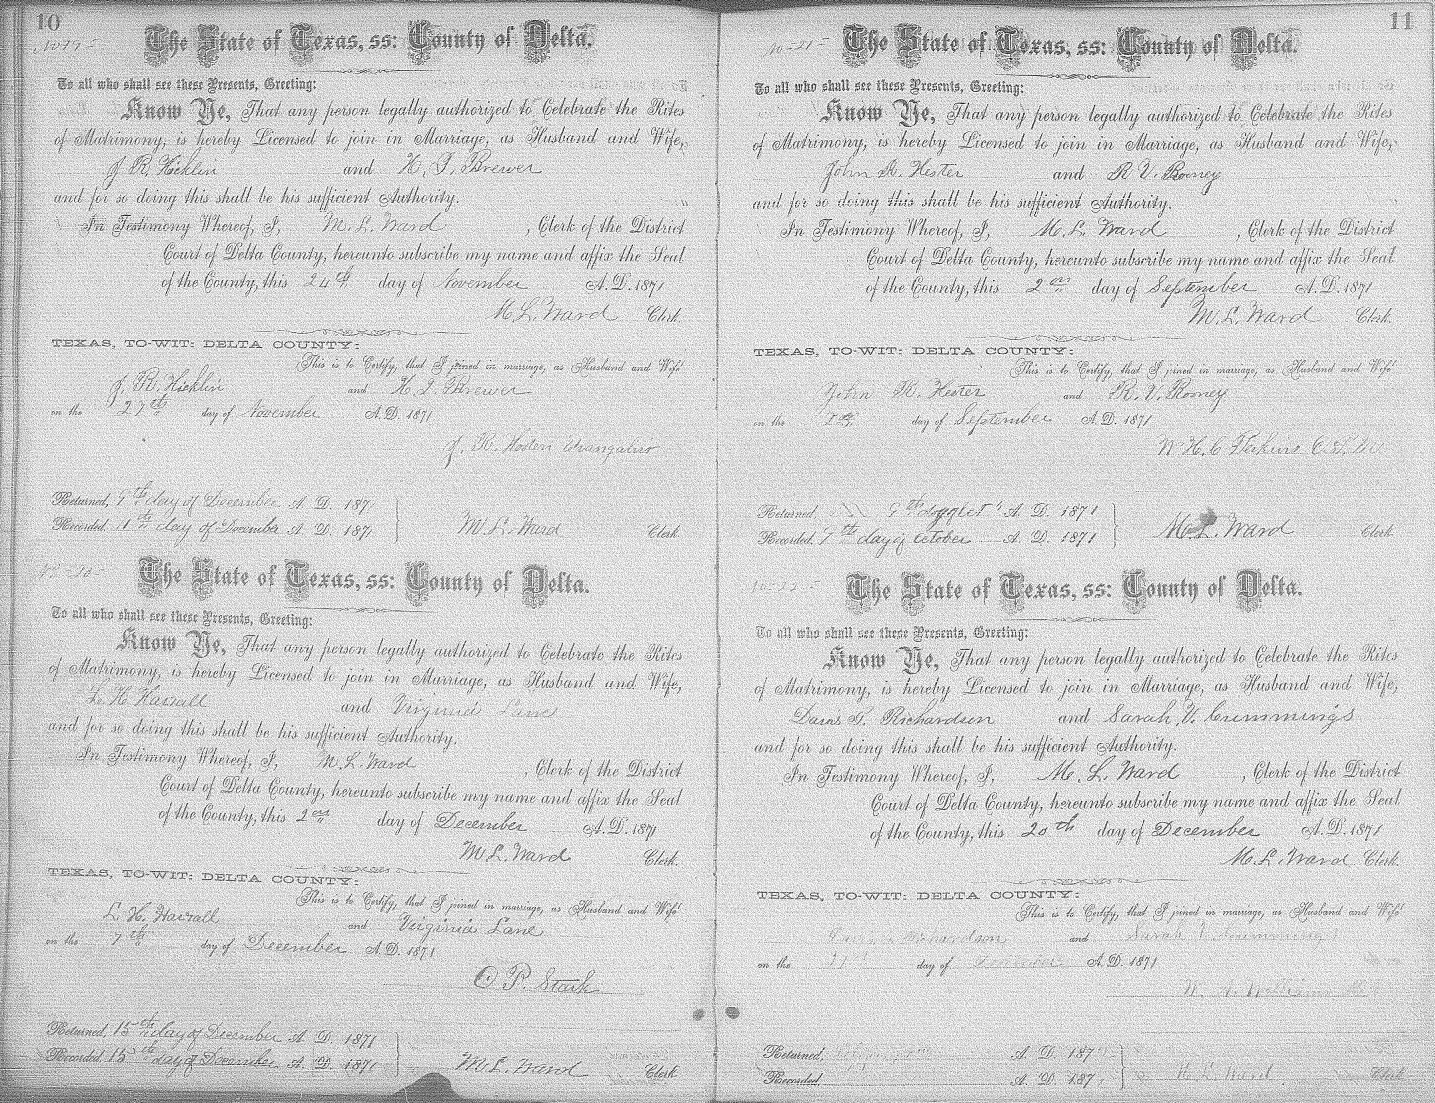 10
No 19 -
The State of Texas, ss: County of Delta.
To all who shall see these Presents, Greeting:
Know Ye, That any person legally authorized to Celebrate the Rites
of Matrimony, is hereby Licensed to join in Marriage, as Husband and Wife,
J R. Hicklin and H. I. Brewer
and for so doing this shall be his sufficient Authority.
In Testimony Whereof, I, M. L. Ward, Clerk of the District
Court of Delta County, hereunto subscribe my name and affix the Seal
of the County, this 24th day of November A.D. 1871
M L. Ward Clerk.
TEXAS, TO-WIT: DELTA COUNTY:
This is to Certify, that I joined in marriage, as Husband and Wife
J. R. Hicklin and H I Brewer
on the 27th day of November A.D. 1871
J. R.
Returned, 9th day of December A. D. 187
Recorded, day of December A. D. 1871
M L. Ward Clerk
The State of Texas, ss: County of Delta.
To all who shall see these Presents, Greeting:
Know Ye, That any person legally authorized to Celebrate the Rites
of Matrimony, is hereby Licensed to join in Marriage, as Husband and Wife,
L. H. and Virginia Lane
and for so doing this shall be his sufficient Authority.
In Testimony Whereof, I, M. L. Ward, Clerk of the District
Court of Delta County, hereunto subscribe my name and affix the Seal
of the County, this 2nd day of December A.D. 1871
M L. Ward Clerk.
TEXAS, TO-WIT: DELTA COUNTY:
This is to Certify, that I joined in marriage, as Husband and Wife
L H. and Virginia Lane
on the 7th day of December A.D. 1871
O P. Stark
Returned, 15th day of December A. D. 1871
Recorded, 15th day of December A. D. 1871
M L. Ward Clerk
11
The State of Texas, ss: County of Delta.
To all who shall see these Presents, Greeting:
Know Ye, That any person legally authorized to Celebrate the Rites
of Matrimony, is hereby Licensed to join in Marriage, as Husband and Wife,
John K. Hester and R V. Rooney
and for so doing this shall be his sufficient Authority.
In Testimony Whereof, I, M. L. Ward, Clerk of the District
Court of Delta County, hereunto subscribe my name and affix the Seal
of the County, this 2nd day of September A.D. 1871
M. L. Ward Clerk.
TEXAS, TO-WIT: DELTA COUNTY:
This is to Certify, that I joined in marriage, as Husband and Wife
John K. Hester and R. V. Rooney
on the day of September A.D. 1871
W H. C
Returned, A. D. 1871
Recorded, 7th day of October A. D. 1871
M. L. Ward Clerk
The State of Texas, ss: County of Delta.
To all who shall see these Presents, Greeting:
Know Ye, That any person legally authorized to Celebrate the Rites
of Matrimony, is hereby Licensed to join in Marriage, as Husband and Wife,
Richardson and Sarah V. Cummings
and for so doing this shall be his sufficient Authority.
In Testimony Whereof, I, M. L. Ward, Clerk of the District
Court of Delta County, hereunto subscribe my name and affix the Seal
of the County, this 20th day of December A.D. 1871
M. L. Ward Clerk.
TEXAS, TO-WIT: DELTA COUNTY:
This is to Certify, that I joined in marriage, as Husband and Wife
Richardson and Sarah V Cummings
on the 21st day of December A.D. 1871
Returned, A. D. 187
Recorded, A. D. 187
M L Ward Clerk